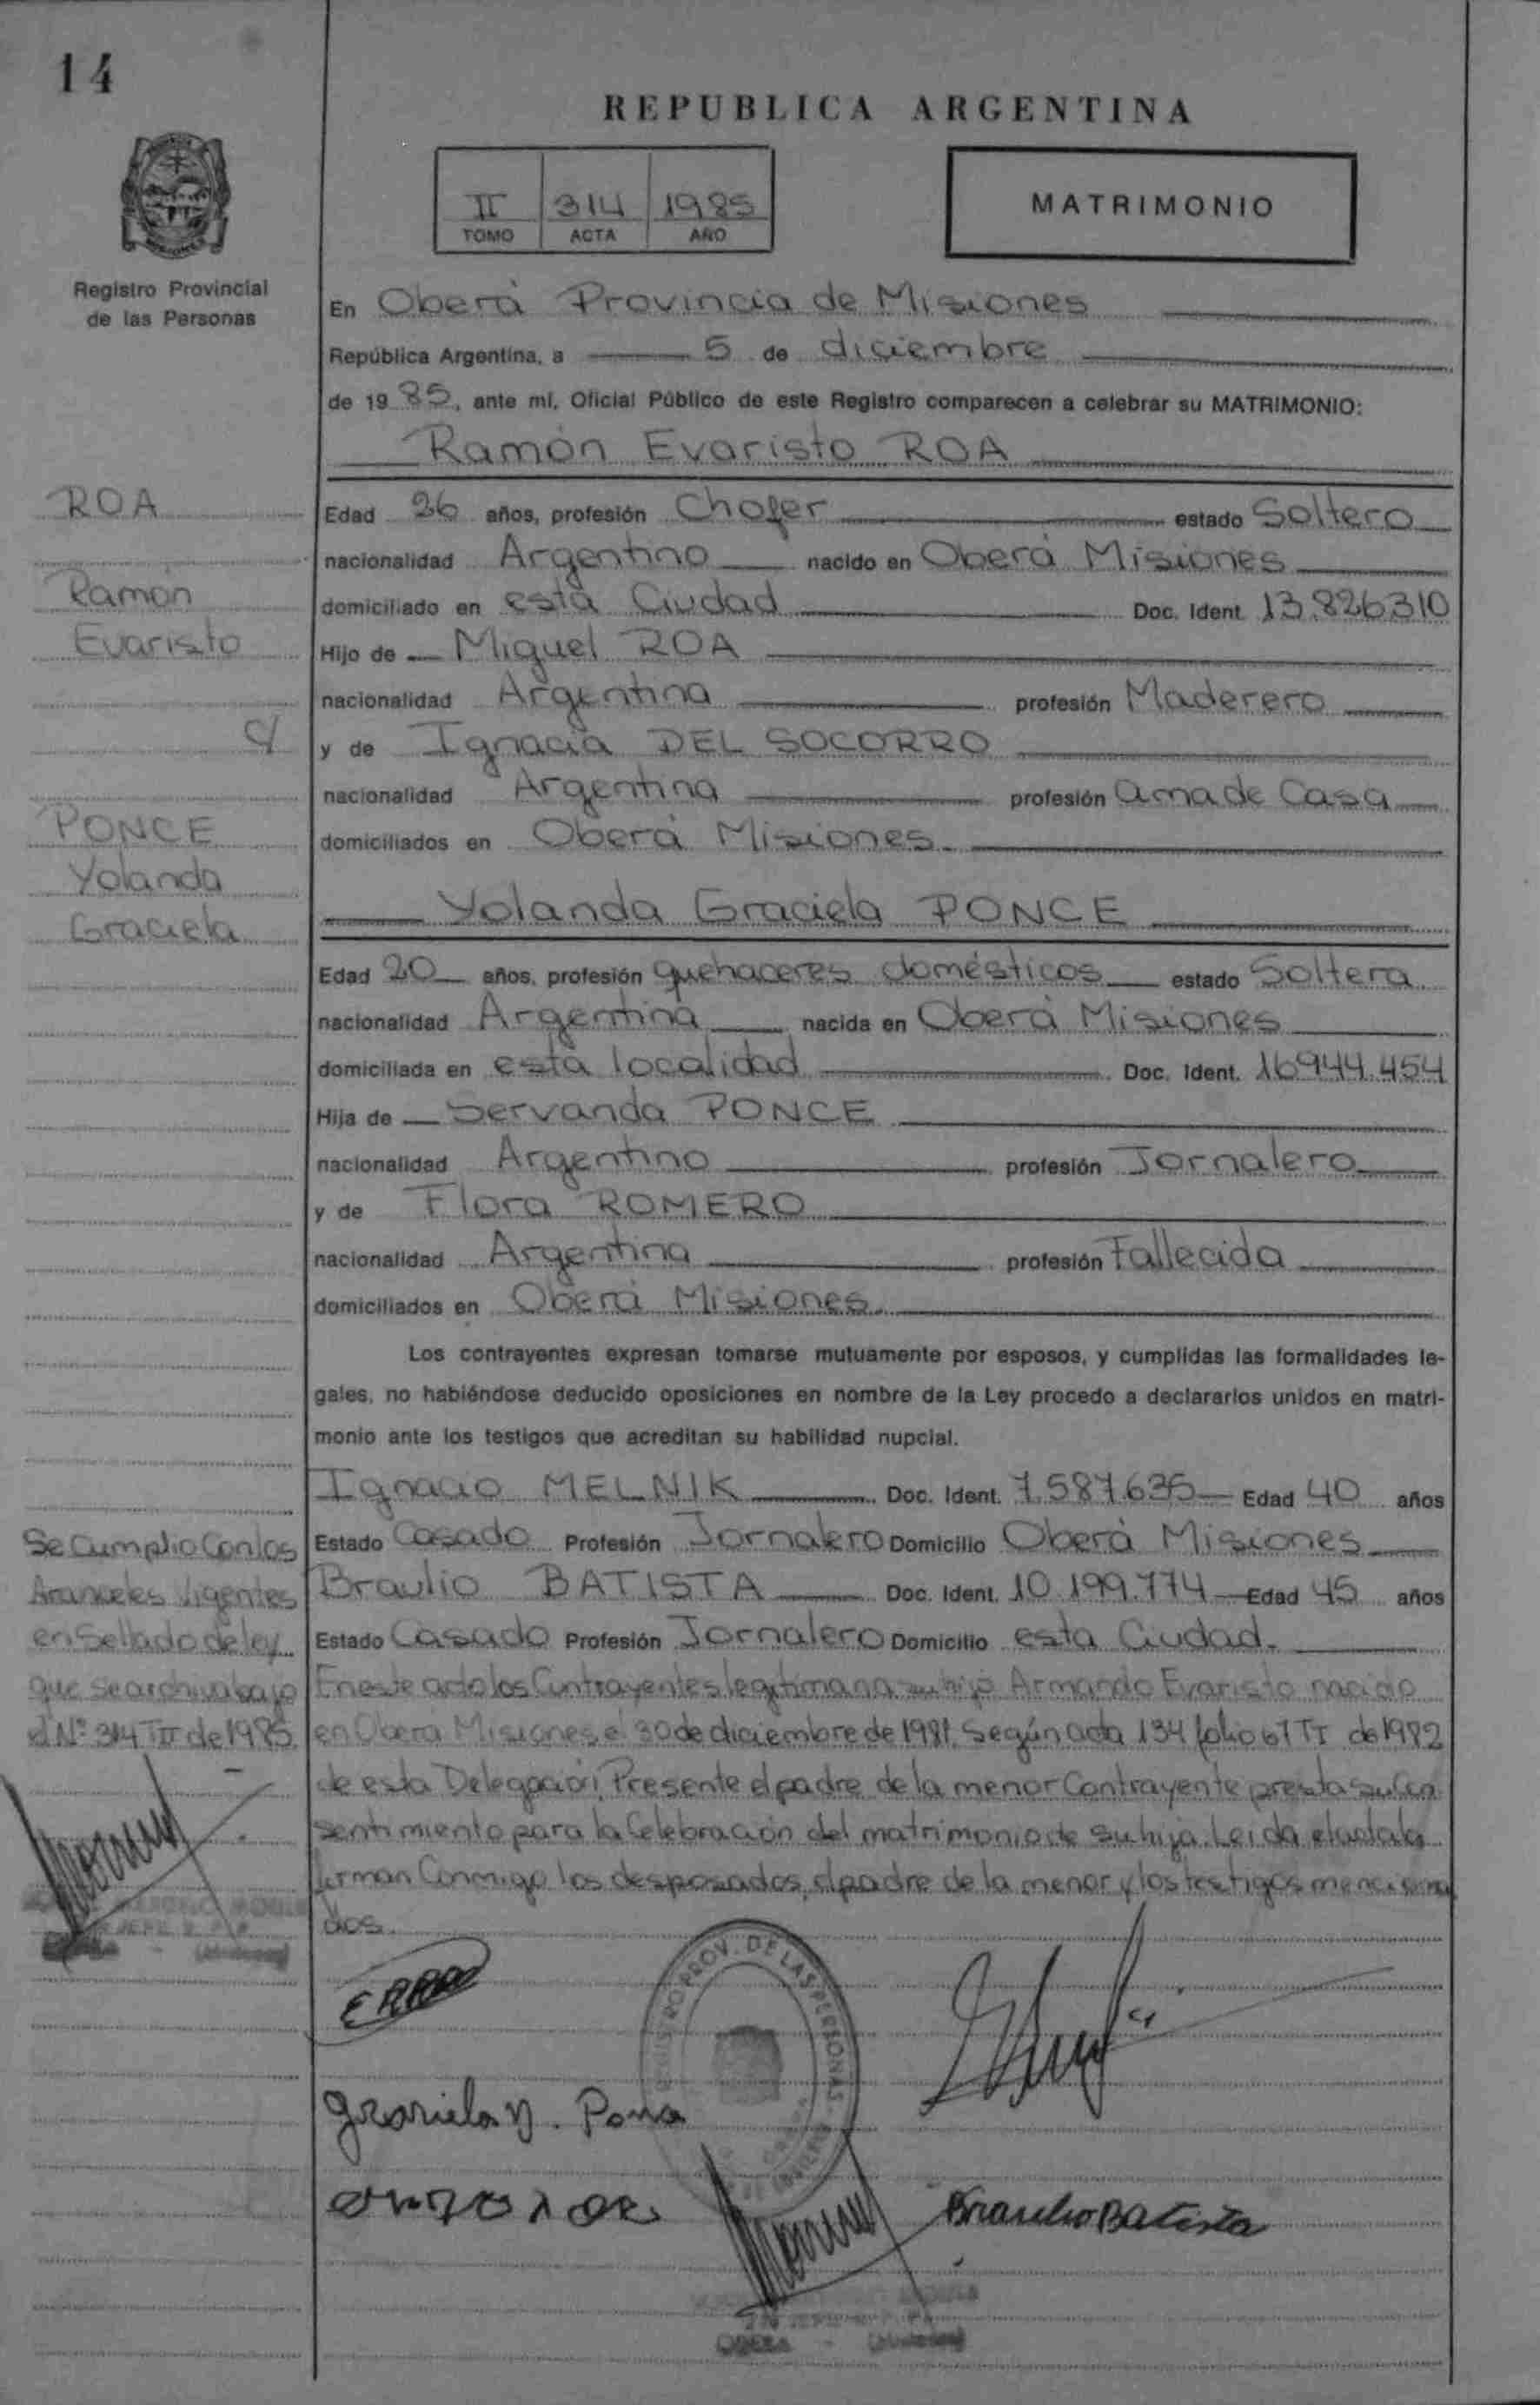 14
REPUBLICA ARGENTINA
II 314 1985
TOMO ACTA AÑO
MATRIMONIO
Registro Provincial
de las Personas
En Oberá Provincia de Misiones
República Argentina, a 5 de diciembre
de 19 85, ante mí, Oficial Público de este Registro comparecen a celebrar su MATRIMONIO:
Ramón Evaristo ROA
ROA
Ramón
Evaristo
c/
PONCE
Yolanda
Graciela
Edad 26 años, profesión Chofer estado Soltero
nacionalidad Argentino nacido en Oberá Misiones
domiciliado en esta Ciudad Doc. Ident. 13.826310
Hijo de Miguel ROA
nacionalidad Argentina profesión Maderero
y de Ignacia DEL SOCORRO
nacionalidad Argentina profesión ama de Casa
domiciliados en Oberá Misiones.
Yolanda Graciela PONCE
Edad 20 años, profesión quehaceres domésticos estado Soltera
nacionalidad Argentina nacida en Oberá Misiones
domiciliada en esta localidad Doc. Ident. 16944.454
Hija de Servanda PONCE
nacionalidad Argentino profesión Jornalero
y de Flora ROMERO
nacionalidad Argentina profesión Fallecida
domiciliados en Oberá Misiones.
Los contrayentes expresan tomarse mutuamente por esposos, y cumplidas las formalidades le-
gales, no habiéndose deducido oposiciones en nombre de la Ley procedo a declararlos unidos en matri-
monio ante los testigos que acreditan su habilidad nupcial.
Ignacio MELNIK Doc. Ident. 7.587.635 Edad 40 años
Estado Casado Profesión Jornalero Domicilio Oberá Misiones
Braulio BATISTA Doc. Ident. 10.199.774 Edad 45 años
Estado Casado Profesión Jornalero Domicilio esta Ciudad.
En este acto los Contrayentes legitiman a su hijo Armando Evaristo nacido
en Oberá Misiones el 30 de diciembre de 1981. Según acta 134 folio 67 TI de 1982
de esta Delegación. Presente el padre de la menor Contrayente presta su Con
sentimiento para la Celebración del matrimonio de su hija. Leída el acta la
firman Conmigo los desposados, el padre de la menor y los testigos menciona
dos.
Se Cumplio Con los
Aranceles Vigentes
en Sellado de ley
que se archiva bajo
el Nº 314 TII de 1985.
ERROA
REGISTRO PROV. DE LAS PERSONAS
Graciela Y. Ponce
Braulio Batista
OBERA - (Misiones)